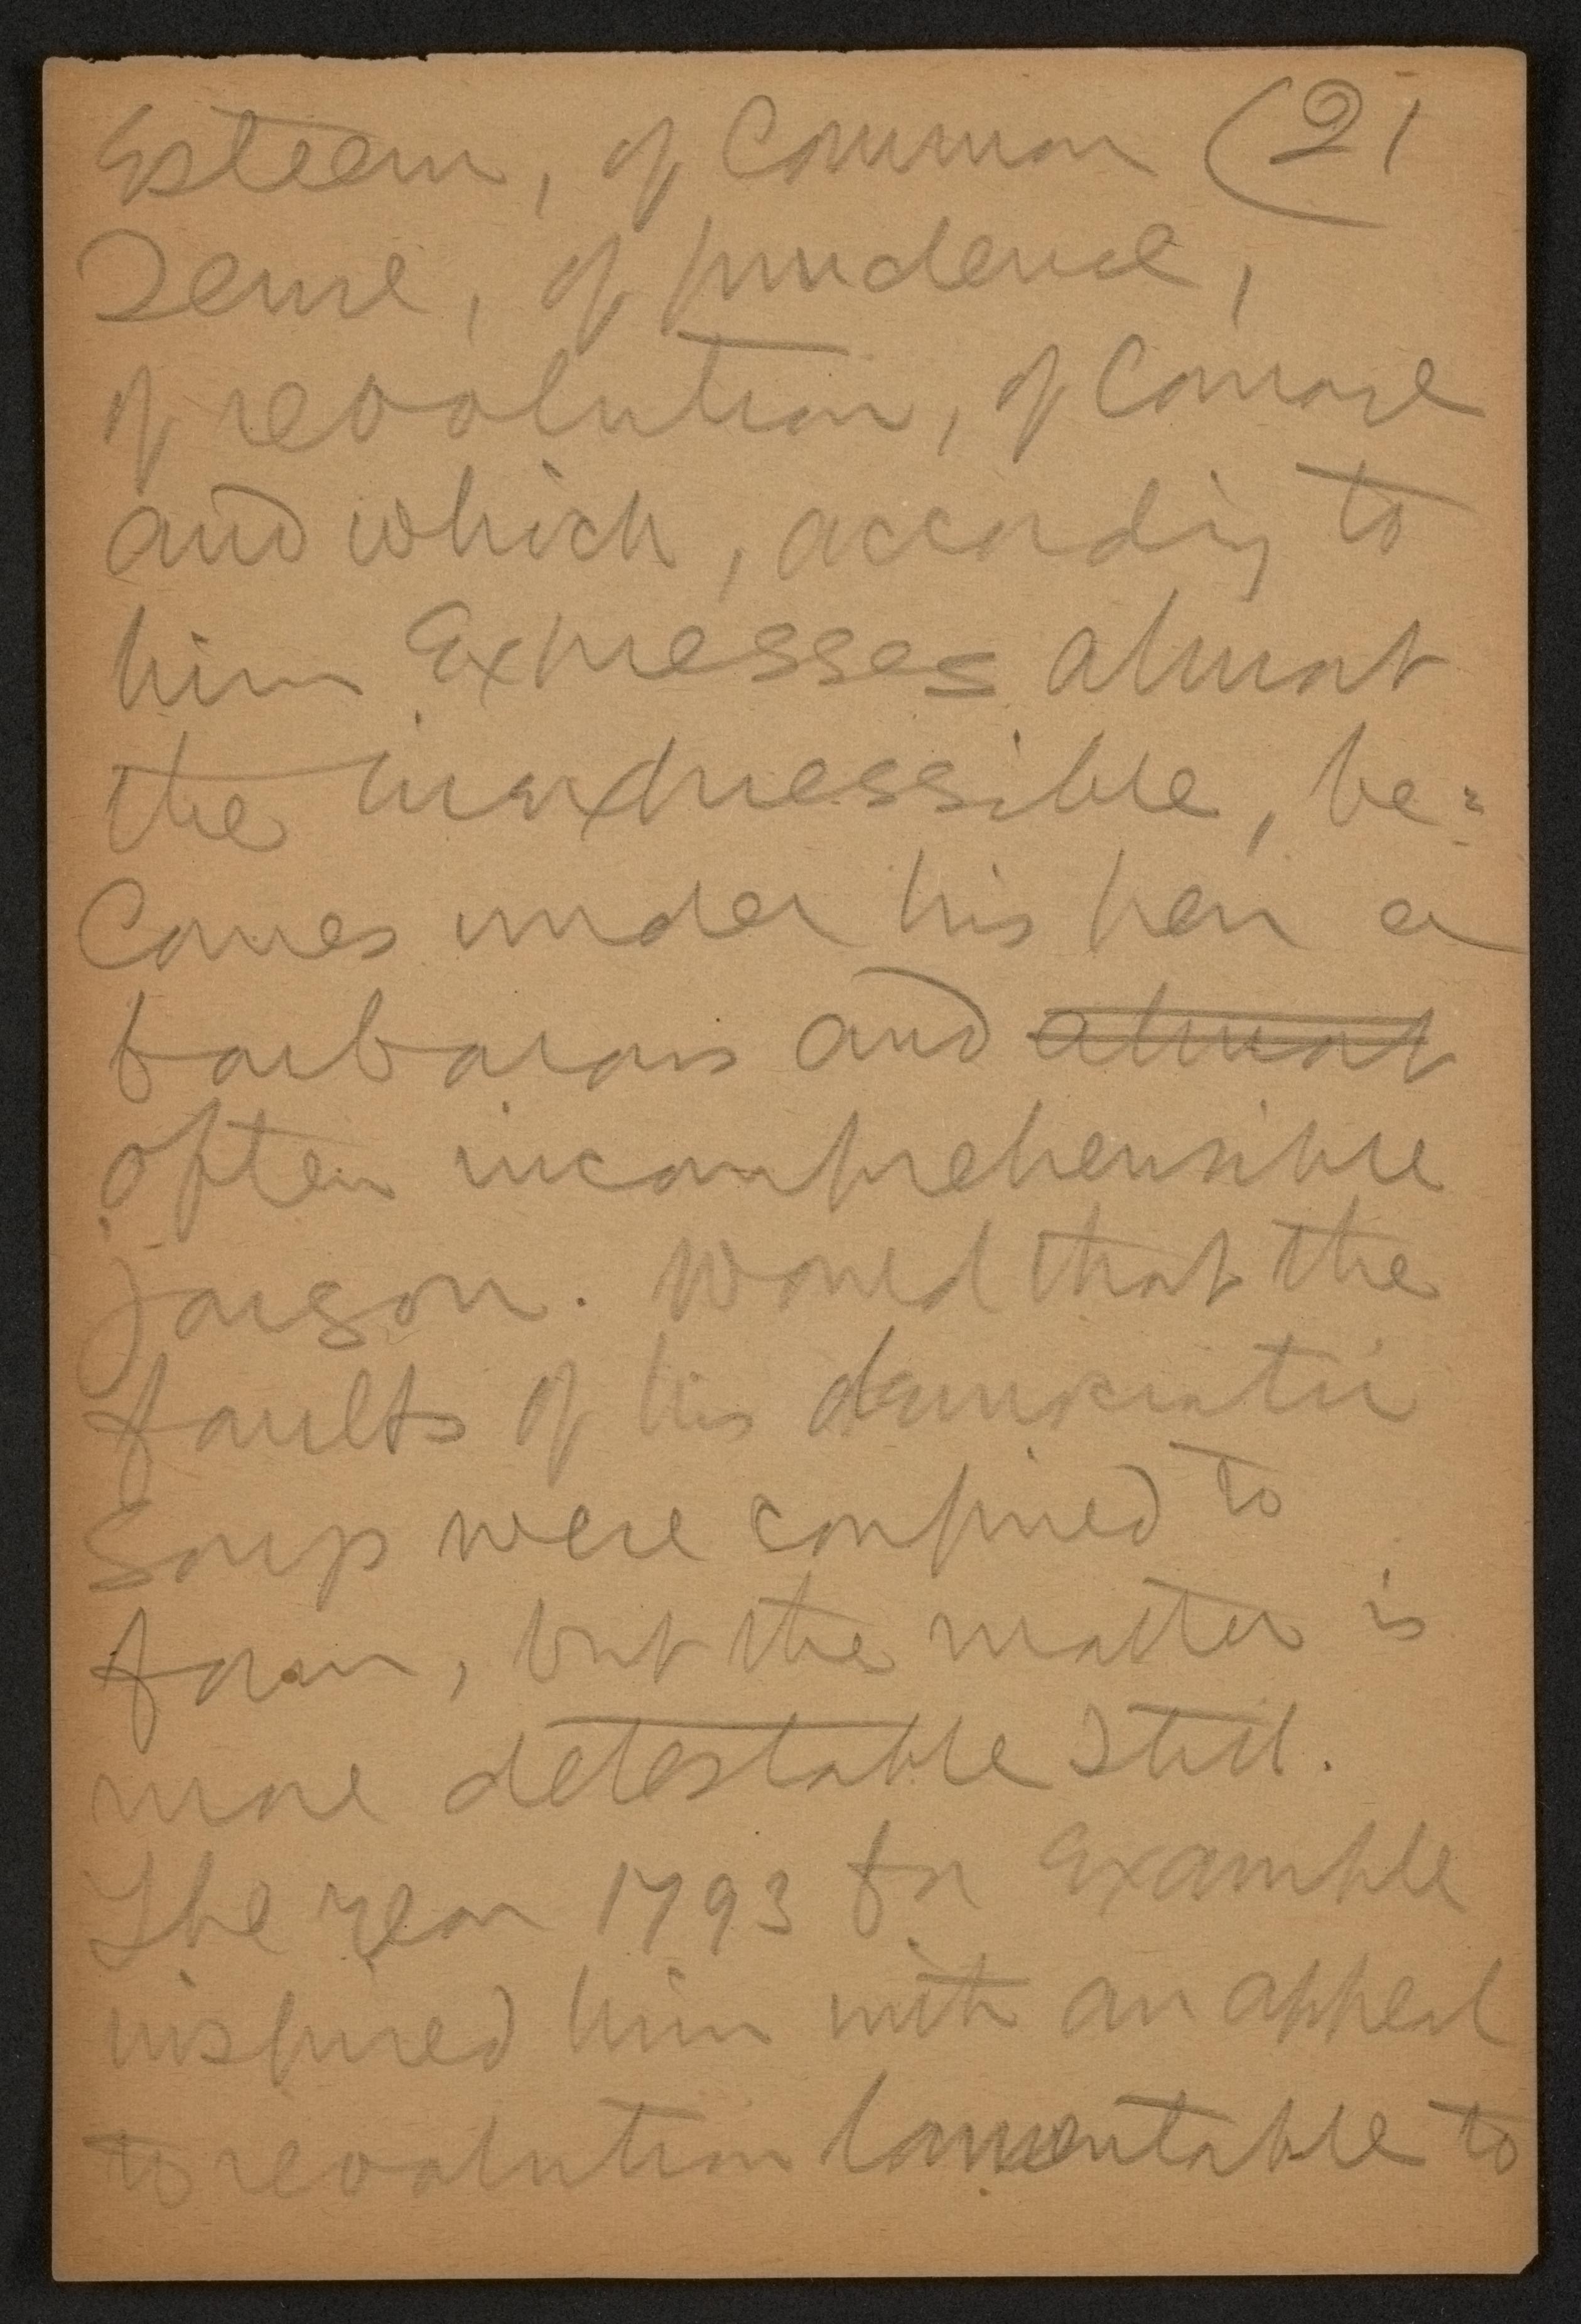 Esteem, of Common (21
Sense, of prudence,
of revolution, of Course
and which, according to
him Expresses almost
the inexpressible, be=
Comes under his pen a
barbarous and ~~almost~~
often incomprehensible
jargon. Would that the
faults of his democratic
Soup were confined to
form, but the matter is
more detestable Still.
The year 1793 for Example
inspired him with an appeal
to revolution lamentable to